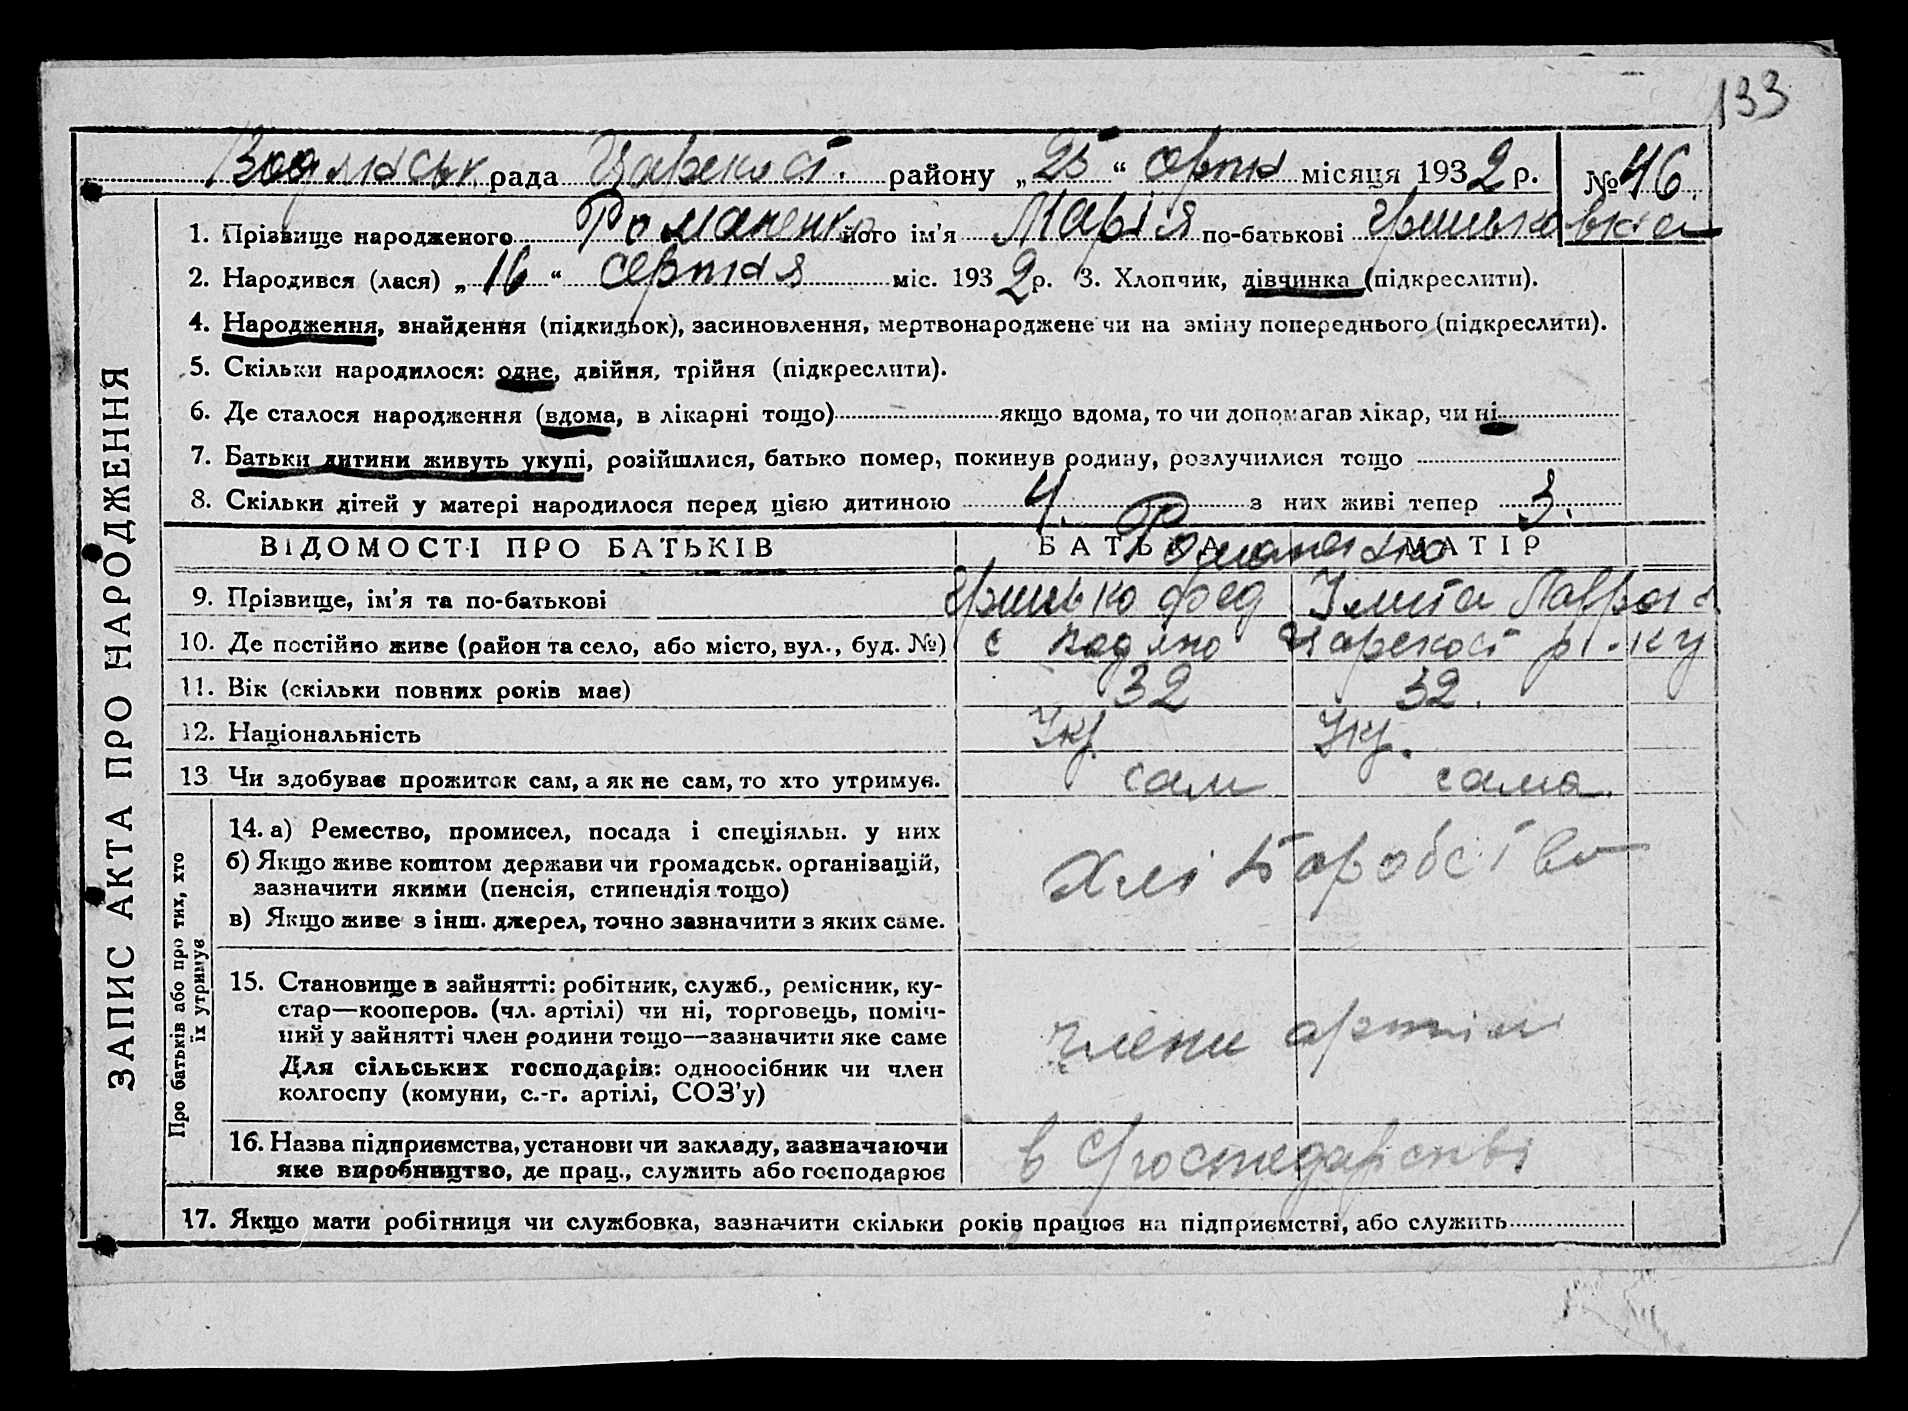 133
рада Царекост. району „ 25 “ серпня місяця 1932 р. № 46
1. Прізвище народженого Романенко його ім'я Марія по-батькові Гриньковна
2. Народився (лася) „ 16 “ серпня міс. 1932 р. 3. Хлопчик, дівчинка (підкреслити).
4. Народження, знайдення (підкидьок), засиновлення, мертвонароджене чи на зміну попереднього (підкреслити).
5. Скільки народилося: одне, двійня, трійня (підкреслити).
6. Де сталося народження (вдома, в лікарні тощо) якщо вдома, то чи допомагав лікар, чи ні
7. Батьки дитини живуть укупі, розійшлися, батько помер, покинув родину, розлучилися тощо
8. Скільки дітей у матері народилося перед цією дитиною 4. з них живі тепер 3.
ВІДОМОСТІ ПРО БАТЬКІВ БАТЬКА МАТІР
Романенко
9. Прізвище, ім'я та по-батькові Гринько Фед
10. Де постійно живе (район та село, або місто, вул., буд. №) с Царекост р-ну
11. Вік (скільки повних років має) 32 32.
12. Національність Укр. Укр.
13 Чи здобуває прожиток сам, а як не сам, то хто утримує. сам сама.
14. а) Ремество, промисел, посада і спеціяльн. у них
б) Якщо живе коштом держави чи громадськ. організацій,
зазначити якими (пенсія, стипендія тощо)
в) Якщо живе з інш. джерел, точно зазначити з яких саме.
Хліборобство
15. Становище в зайнятті: робітник, служб., ремісник, ку-
стар—кооперов. (чл. артілі) чи ні, торговець, поміч-
ний у зайнятті член родини тощо—зазначити яке саме
Для сільських господарів: одноосібник чи член
колгоспу (комуни, с.-г. артілі, СОЗ'у)
члени артілі
16. Назва підприємства, установи чи закладу, зазначаючи
яке виробництво, де прац., служить або господарює
в господарстві
17. Якщо мати робітниця чи службовка, зазначити скільки років працює на підприємстві, або служить
ЗАПИС АКТА ПРО НАРОДЖЕННЯ
Про батьків або про тих, хто
їх утримує